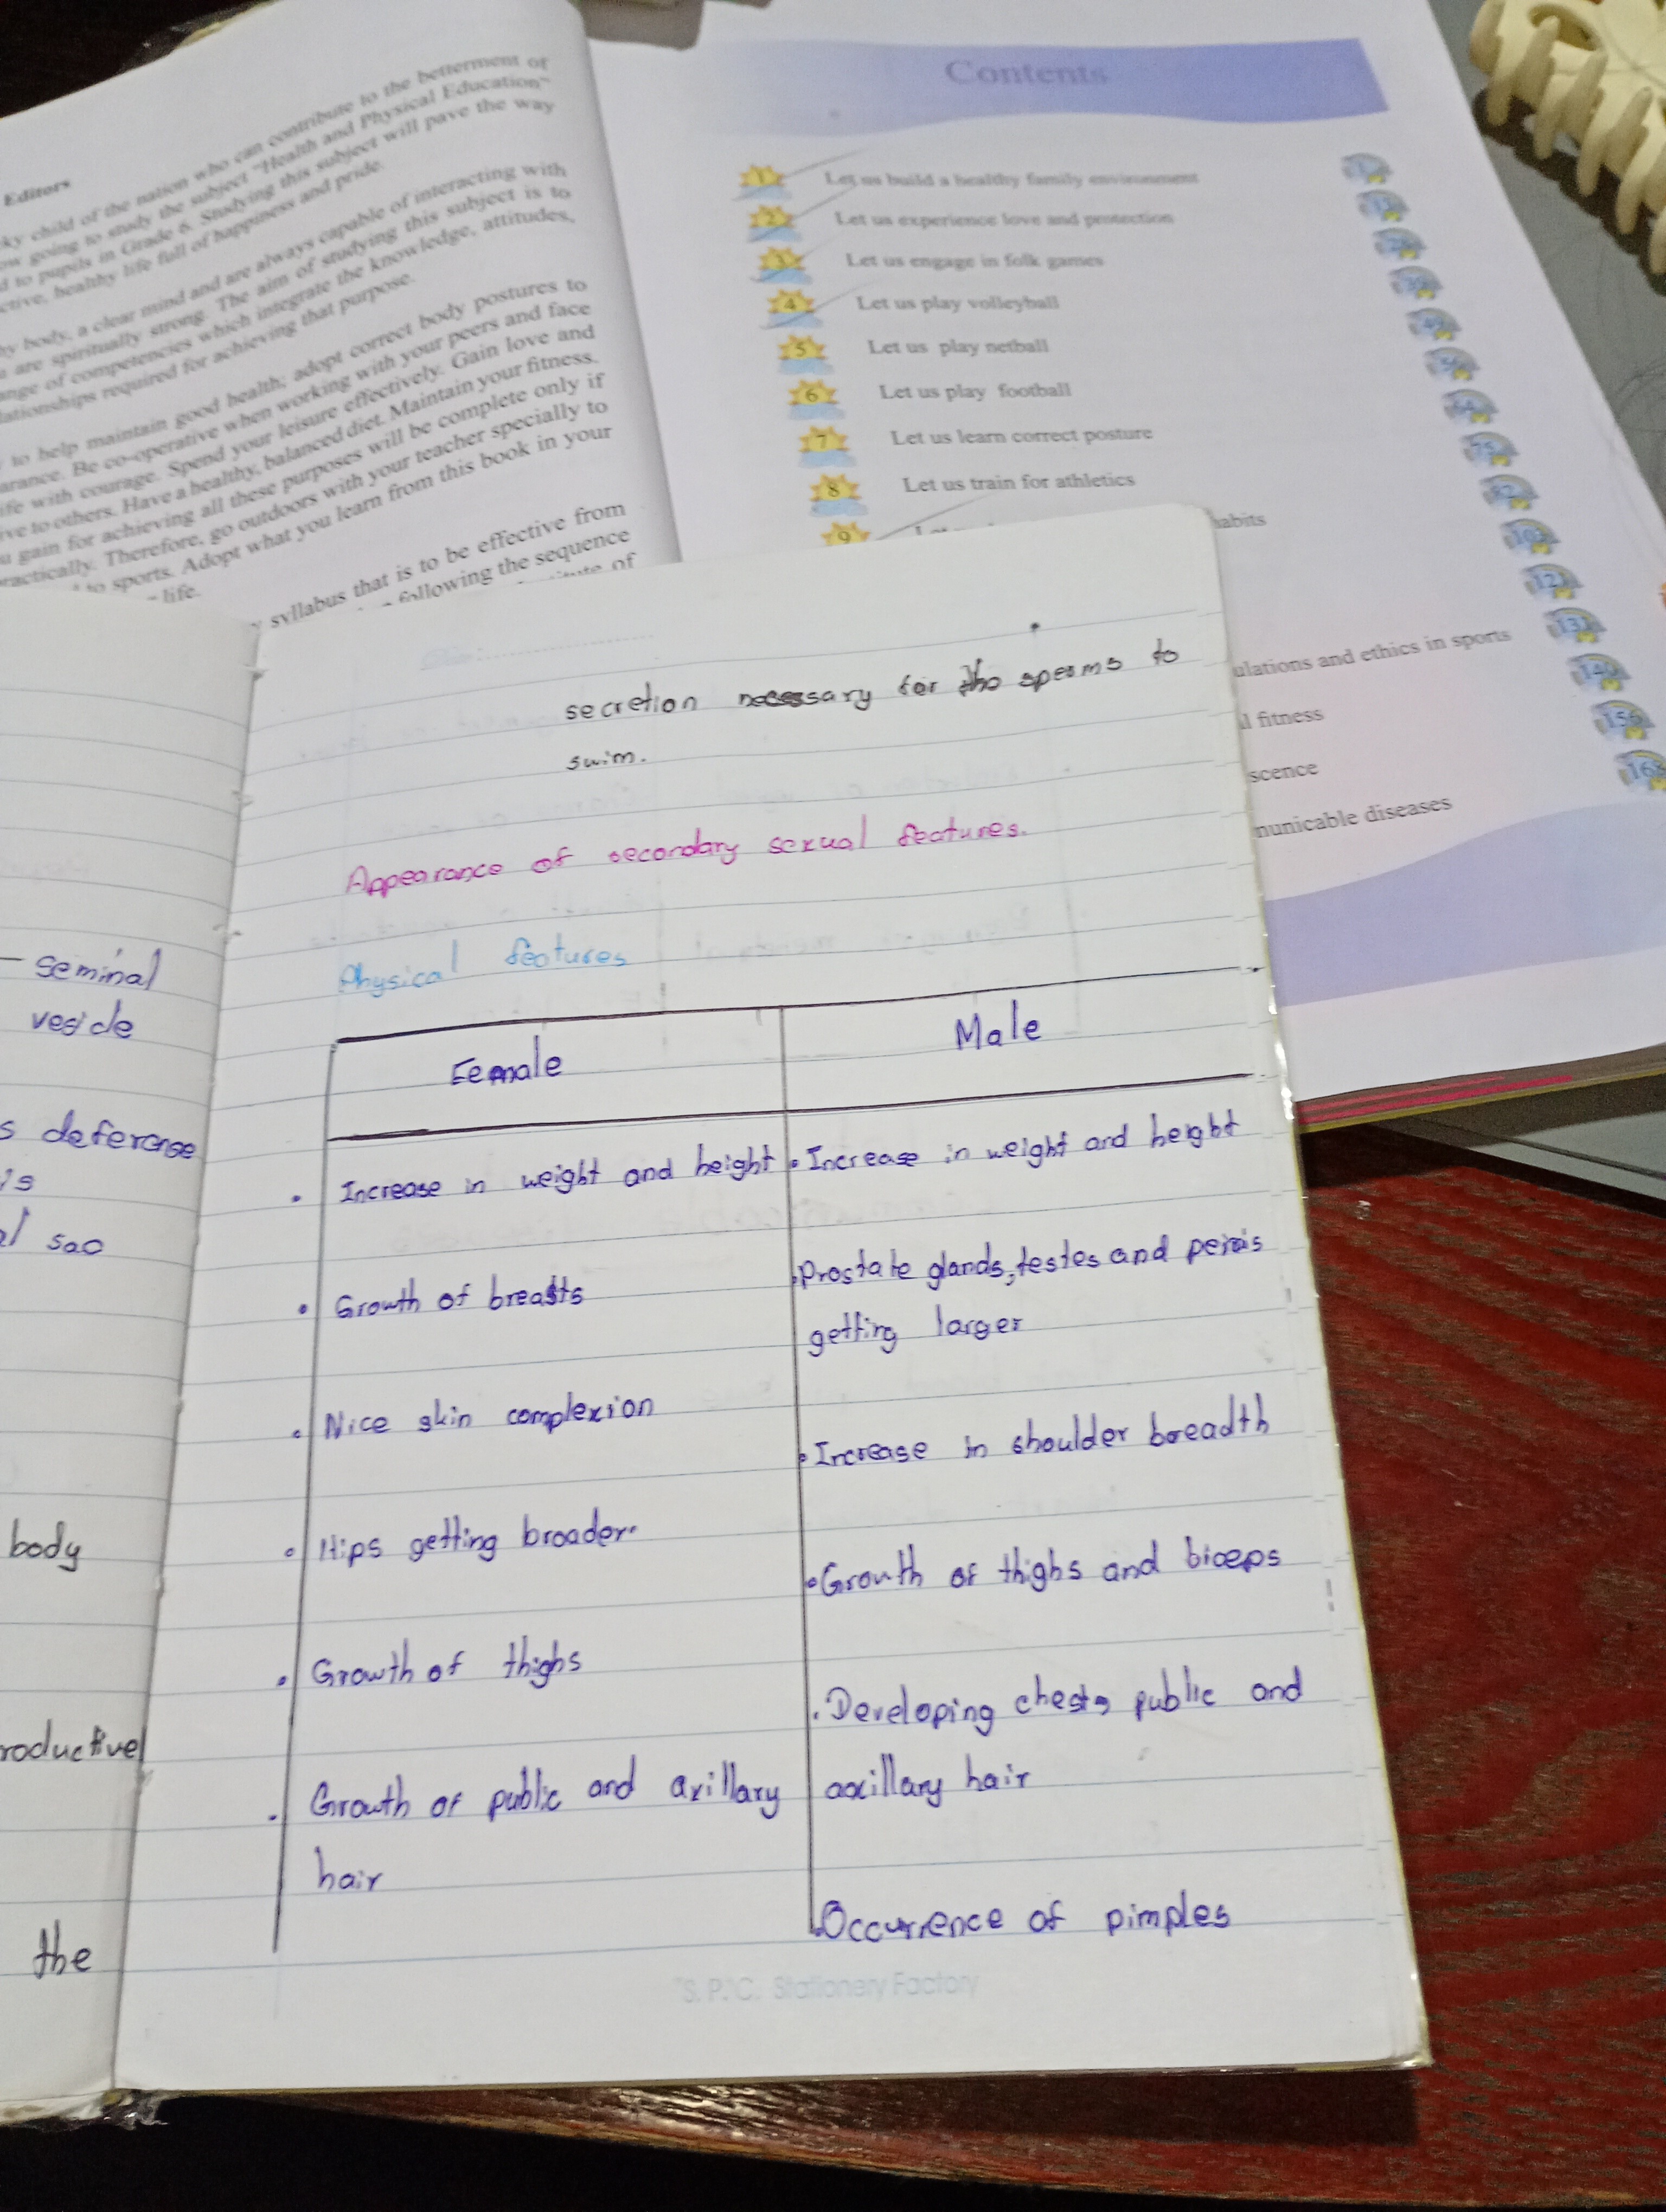 Editors
ky child of the nation who can contribute to the betterment of
ow going to study the subject "Health and Physical Education"
d to pupils in Grade 6. Studying this subject will pave the way
ctive, healthy life full of happiness and pride.
hy body, a clear mind and are always capable of interacting with
are spiritually strong. The aim of studying this subject is to
ange of competencies which integrate the knowledge, attitudes,
lationships required for achieving that purpose.
to help maintain good health; adopt correct body postures to
arance. Be co-operative when working with your peers and face
ife with courage. Spend your leisure effectively. Gain love and
ive to others. Have a healthy, balanced diet. Maintain your fitness.
u gain for achieving all these purposes will be complete only if
ractically. Therefore, go outdoors with your teacher specially to
to sports. Adopt what you learn from this book in your
life.
syllabus that is to be effective from
following the sequence
of
Contents
1 Let us build a healthy family environment 1
2 Let us experience love and protection
3 Let us engage in folk games
4 Let us play volleyball
5 Let us play netball
6 Let us play football
7 Let us learn correct posture
8 Let us train for athletics 75
9 habits
ulations and ethics in sports
l fitness
scence
municable diseases 168
seminal
vesicle
s deferense
is
al sac
body
roductive
the
secretion necessary for the sperms to
swim.
Appearance of secondary sexual features.
Physical features
Female Male
• Increase in weight and height
• Growth of breasts
• Nice skin complexion
• Hips getting broader.
• Growth of thighs
• Growth of public and axillary
hair
• Increase in weight and height
• Prostate glands, testes and penis
getting larger
• Increase in shoulder breadth
• Growth of thighs and biceps
• Developing chests, public and
axillary hair
• Occurrence of pimples
"S. P."C. Stationery Factory